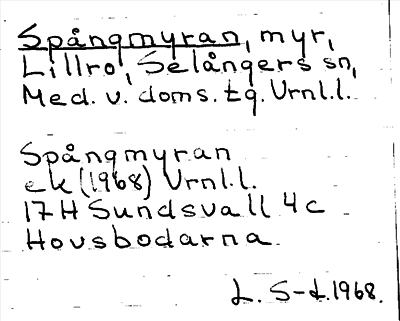 Spångmyran, myr,
Lillro, Selångers sn,
Med. v. doms. tg. Vrnl.l.
Spångmyran
ek (1968) Vrnl.l.
17H Sundsvall 4c
Hovsbodarna
L. S-L. 1968.